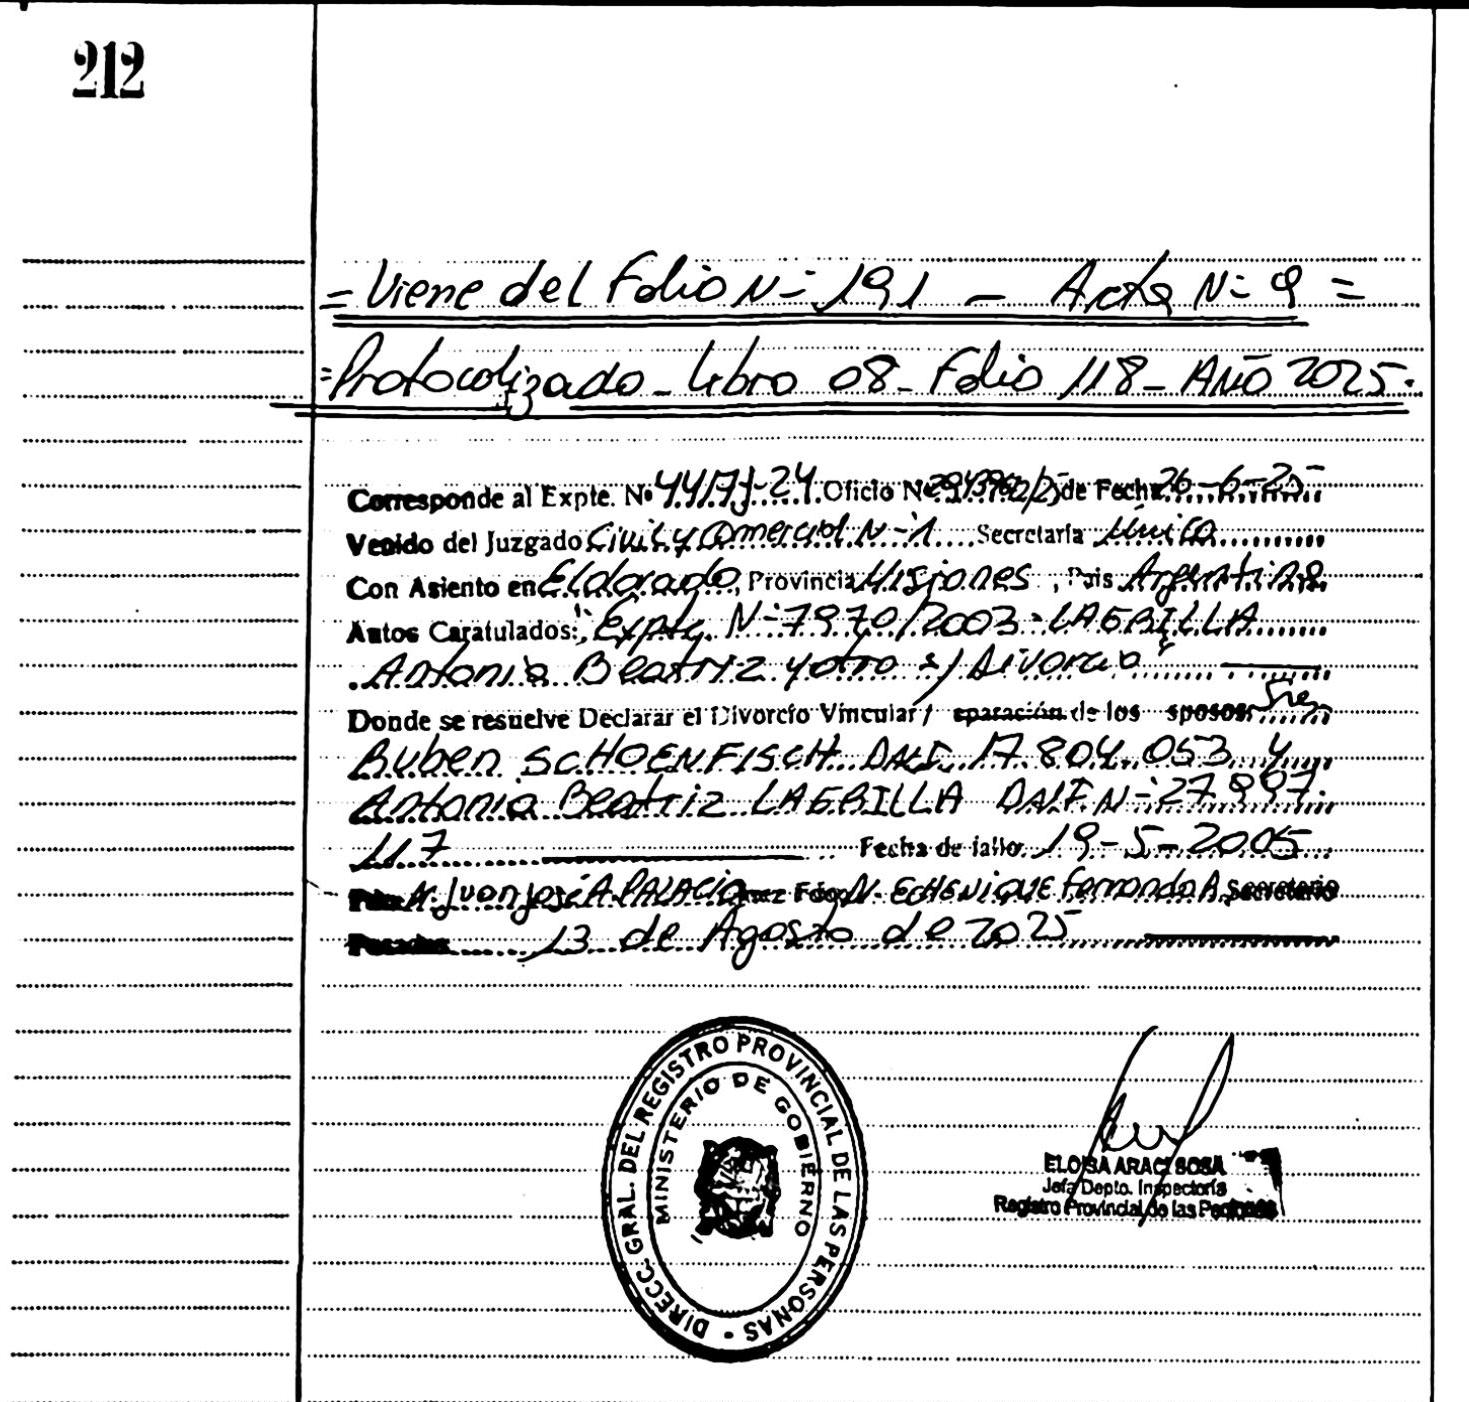 212
= Viene del Folio Nº 191 - Acta Nº 9 =
= Protocolizado - Libro 08 - Folio 118 - Año 2025.
Corresponde al Expte. Nº 4417J-24 Oficio Nº de Fecha 26-6-25
Venido del Juzgado Civil y Comercial Nº 1 Secretaría Única
Con Asiento en Eldorado, Provincia Misiones, Pais Argentina
Autos Caratulados: "Expte. Nº 7970/2003 - LAGRILLA
Antonia Beatriz y otro s/ Divorcio"
Donde se resuelve Declarar el Divorcio Vincular / eparación de los sposos Sres
Ruben SCHOENFISCH DNI. 17.804.053 y
Antonia Beatriz LAGRILLA DNI. Nº 27.997.
117 Fecha de fallo 19-5-2005
Juan José A. PALACIO Juez Fdo. ECHENIQUE Fernando A. Secretario
Posadas 13 de Agosto de 2025
DIRECC. GRAL. DEL REGISTRO PROVINCIAL DE LAS PERSONAS
MINISTERIO DE GOBIERNO
ELOISA ARACI SOSA
Jefa Depto. Inspectoría
Registro Provincial de las Personas